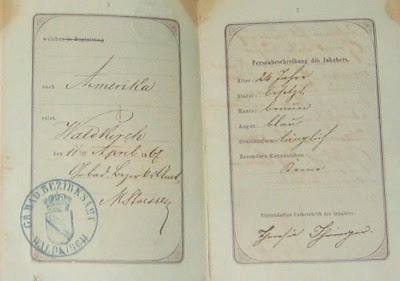 2
welcher in Begleitung
nach Amerika
reist.
Waldkirch
den 11 April 1867
Gr. bad. Bezirks Amt
GR. BAD. BEZIRKSAMT
WALDKIRCH
3
Personbeschreibung des Inhabers.
Alter: 24 Jahre
Statur: besetzt
Haare: braun
Augen: blau
Gesichtsform: länglich
Besondere Kennzeichen:
Keine
Eigenhändige Unterschrift des Inhabers: